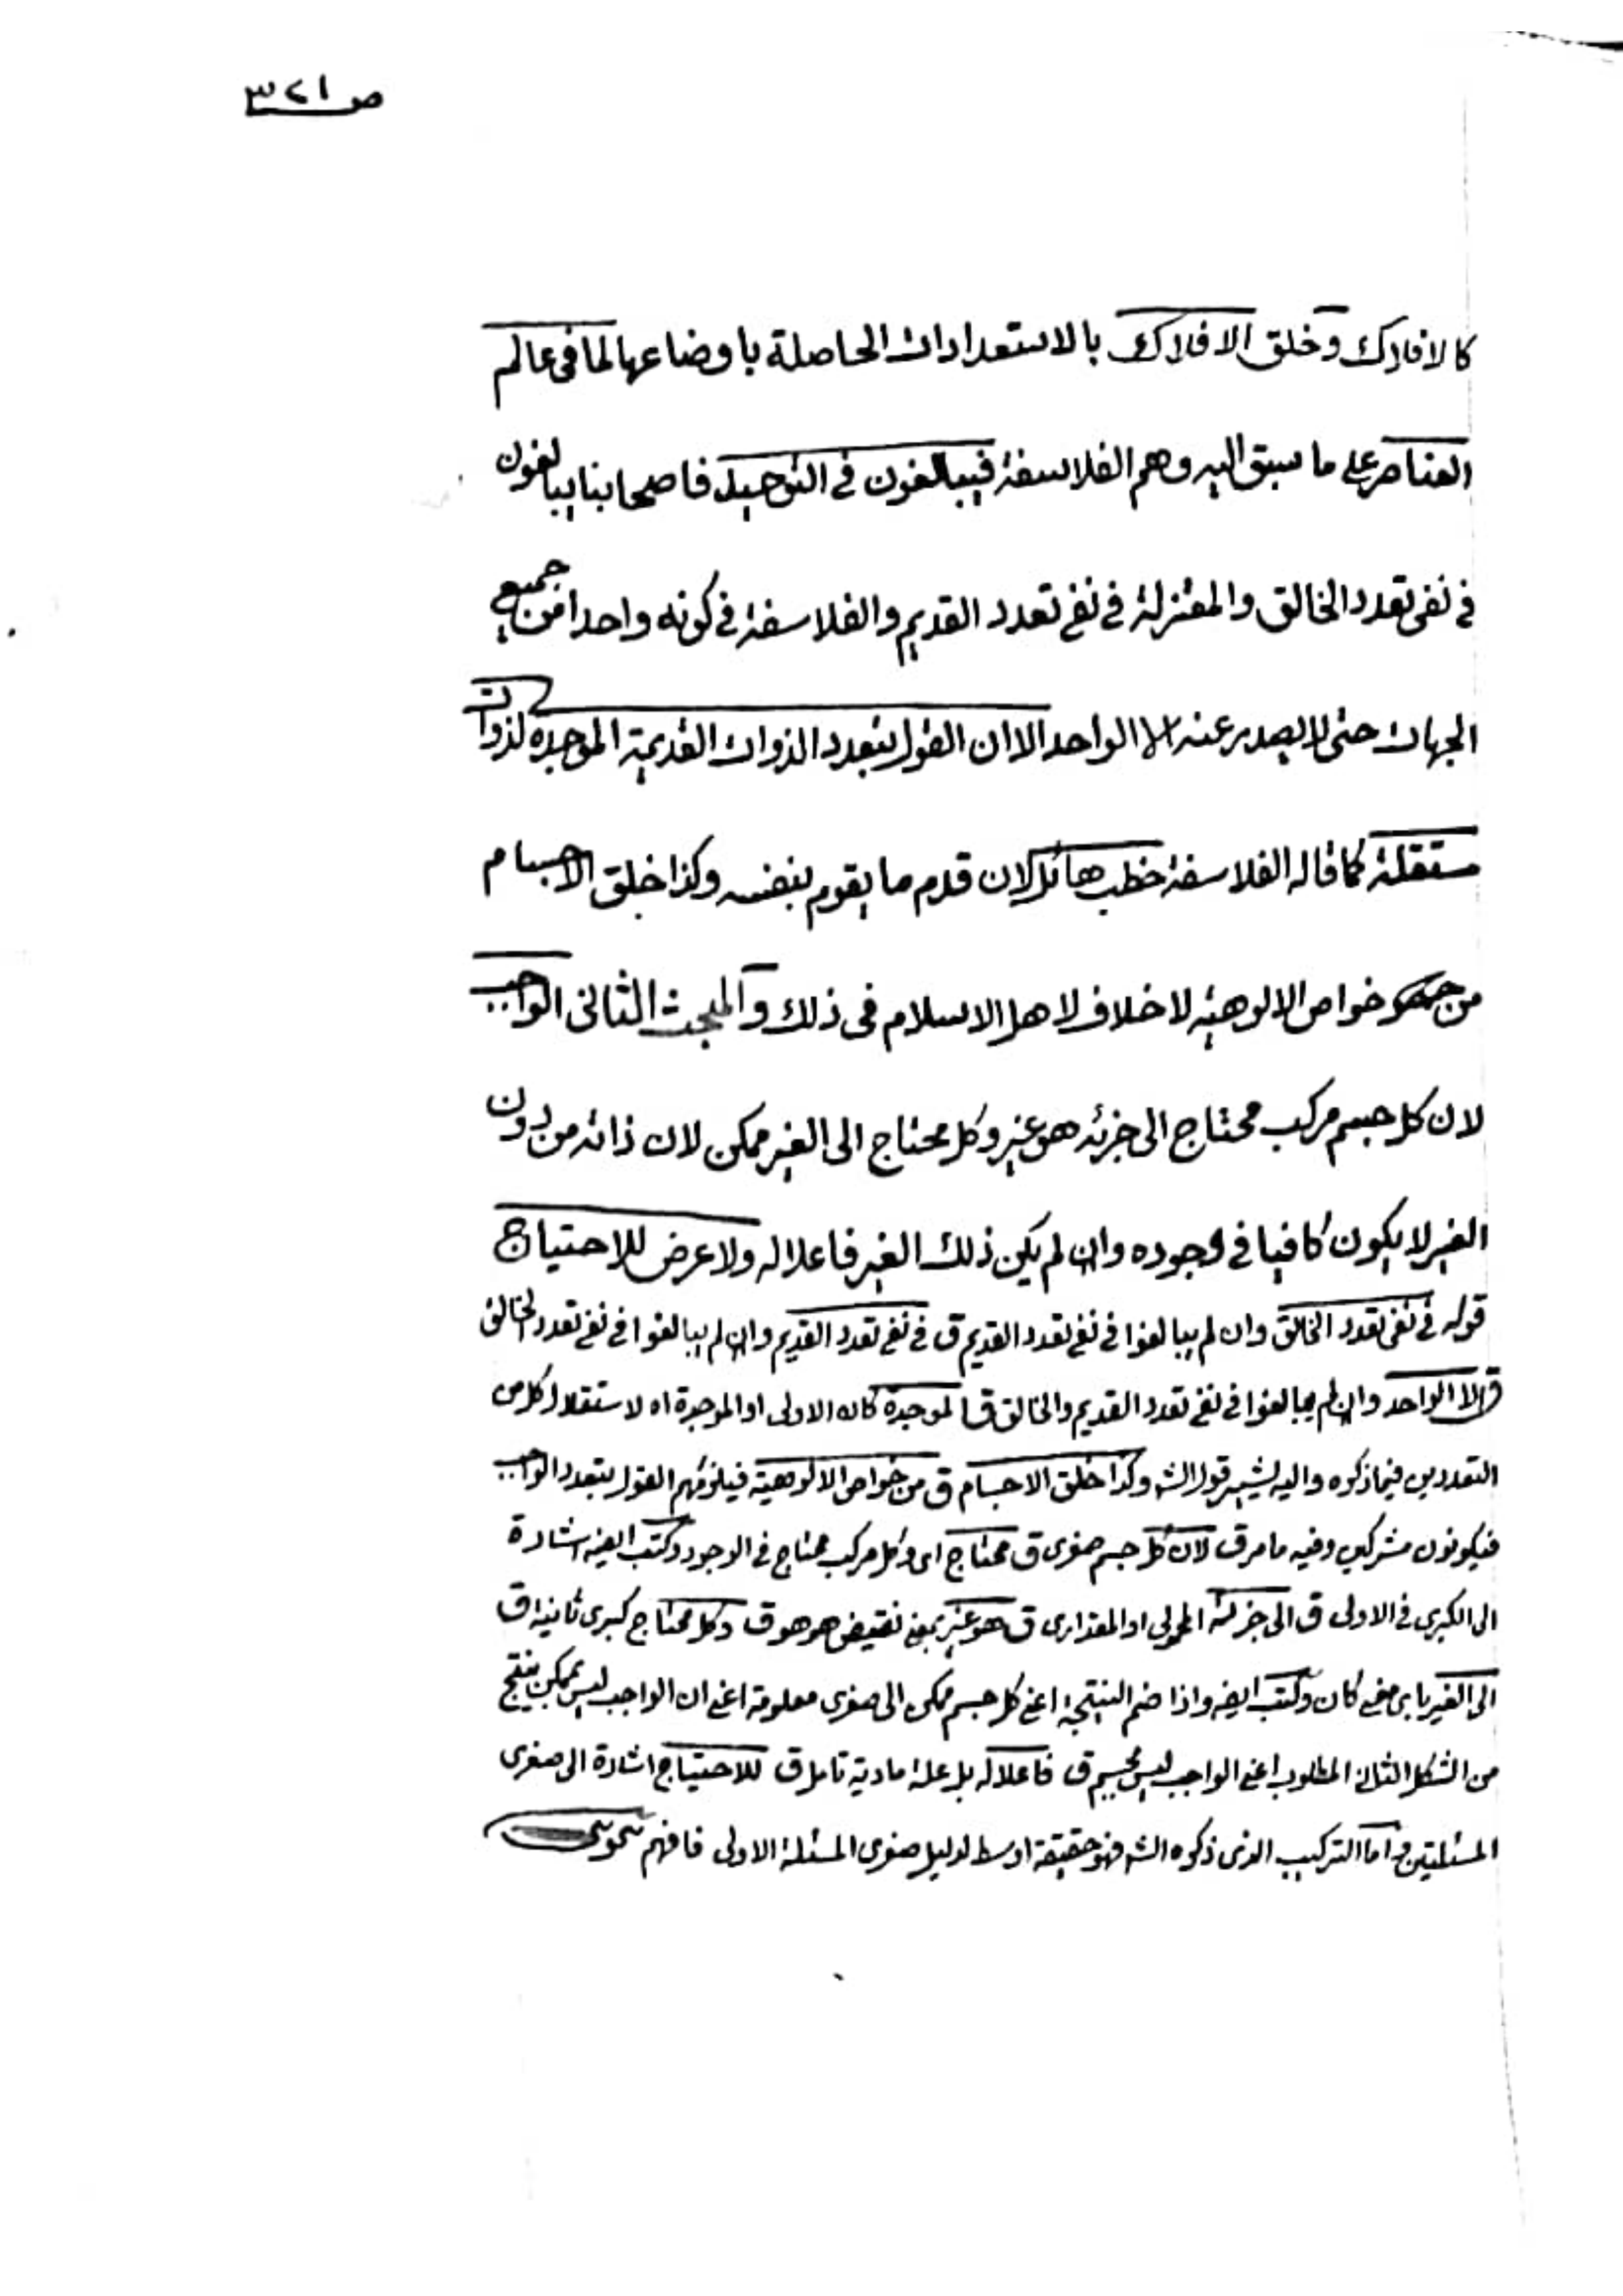 ص ٣٢١
كالافلاك وخلق الافلاك بالاستعدادات الحاصلة باوضاعها لما في عالم
العناصر على ما سبق اليه وهم الفلاسفة فيبالغون في التوحيد فاصحابنا يبالغون
في نفي تعدد الخالق والمعتزلة في نفي تعدد القديم والفلاسفة في كونه واحدا من جميع
الجهات حتى لا يصدر عنه الا الواحد الا ان القول بتعدد الذوات القديمة الموجدة لذوات
مستقلة كما قاله الفلاسفة خطب هائل لان قدم ما يقوم بنفسه وكذا خلق الاجسام
من خواص الالوهية لا خلاف لاهل الاسلام في ذلك و المبحث الثاني الواجب
لان كل جسم مركب محتاج الى جزئه هو غير وكل محتاج الى الغير ممكن لان ذاته من دون
الغير لا يكون كافيا في وجوده وان لم يكن ذلك الغير فاعلا له ولا عرض للاحتياج
قوله في نفي تعدد الخالق وان لم يبالغوا في نفي تعدد القديم ق في نفي تعدد القديم وان لم يبالغوا في نفي تعدد الخالق
ق الا الواحد وان لم يبالغوا في نفي تعدد القديم والخالق ق الموجدة كان الاولى او الموجدة اه لاستقلال كل من
التعددين فيما ذكوه واليه يشير قول الش وكذا خلق الاجسام ق من خواص الالوهية فيلزمهم القول بتعدد الواجب
فيكونون مشركين وفيه ما مر ق لان كل جسم صغرى ق محتاج اى وكل مركب محتاج في الوجود وكتب ايضه اشارة
الى الكبرى في الاولى ق الى جزئه المحمولي او المقداري ق هو غير بمعنى نقيض هو هو ق وكل محتاج كبرى ثانية ق
الى الغير باى معنى كان وكتب ايضه واذا ضم النتيجة اعني كل جسم ممكن الى صغرى معلومة اعني ان الواجب ليس بممكن ينتج
من الشكل الثاني المطلوب اعني الواجب ليس بجسم ق فاعلا له بل علة مادية تامل ق للاحتياج اشارة الى صغرى
المسئلتين واما التركيب الذى ذكوه الش فهو حقيقة اوسط لدليل صغرى المسئلة الاولى فافهم